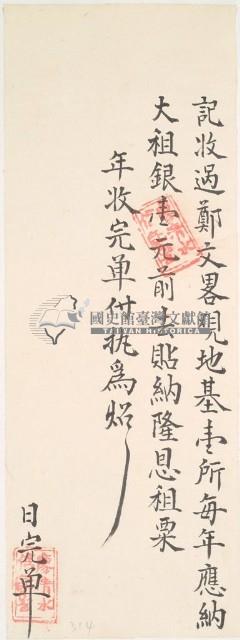 記收過鄭文畧觀地基壹所每年應納
大祖銀壹元前去貼納隆恩租粟
年收完单付執為炤
日完单
國史館臺灣文獻館
TAIWAN HISTORICA
314